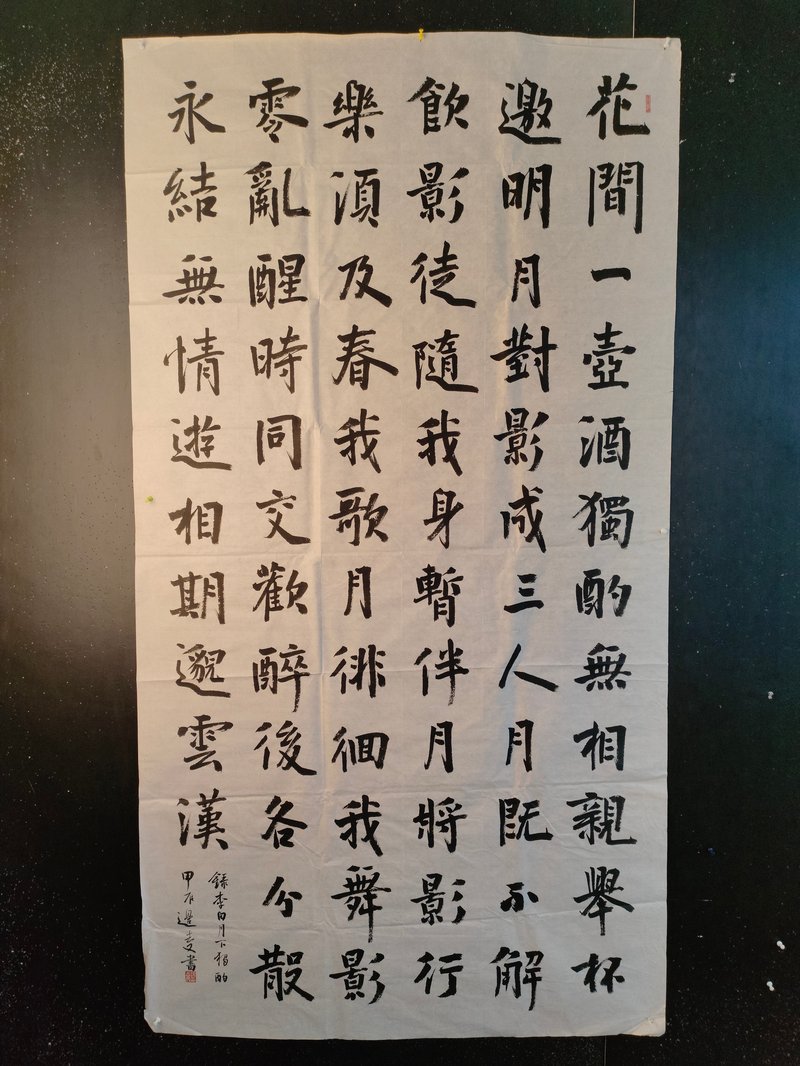 花間一壺酒獨酌無相親舉杯
邀明月對影成三人月既不解
飲影徒隨我身暫伴月將影行
樂須及春我歌月徘徊我舞影
零亂醒時同交歡醉後各分散
永結無情遊相期邈雲漢
錄李白月下獨酌
甲辰邊書